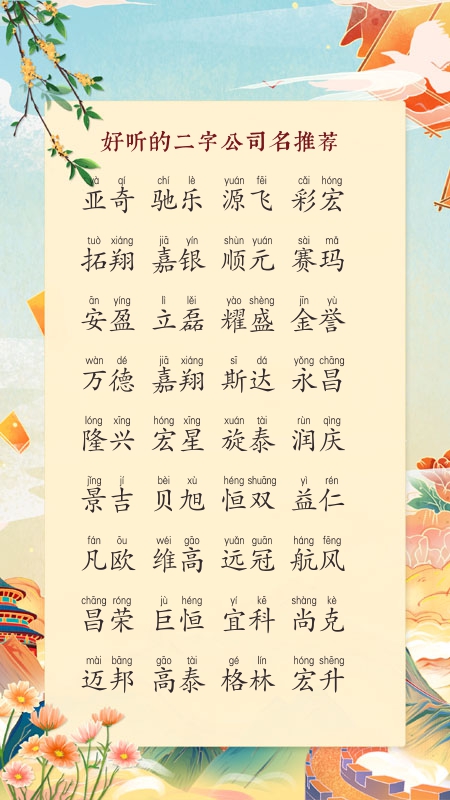 好听的二字公司名推荐
yà qí chí lè yuán fēi cǎi hóng
亚奇 驰乐 源飞 彩宏
tuò xiáng jiā yín shùn yuán sài mǎ
拓翔 嘉银 顺元 赛玛
ān yíng lì lěi yào shèng jīn yù
安盈 立磊 耀盛 金誉
wàn dé jiā xiáng sī dá yǒng chāng
万德 嘉翔 斯达 永昌
lóng xīng hóng xīng xuán tài rùn qìng
隆兴 宏星 旋泰 润庆
jǐng jí bèi xù héng shuāng yì rén
景吉 贝旭 恒双 益仁
fán ōu wéi gāo yuǎn guān háng fēng
凡欧 维高 远冠 航风
chāng róng jù héng yí kē shàng kè
昌荣 巨恒 宜科 尚克
mài bāng gāo tài gé lín hóng shēng
迈邦 高泰 格林 宏升